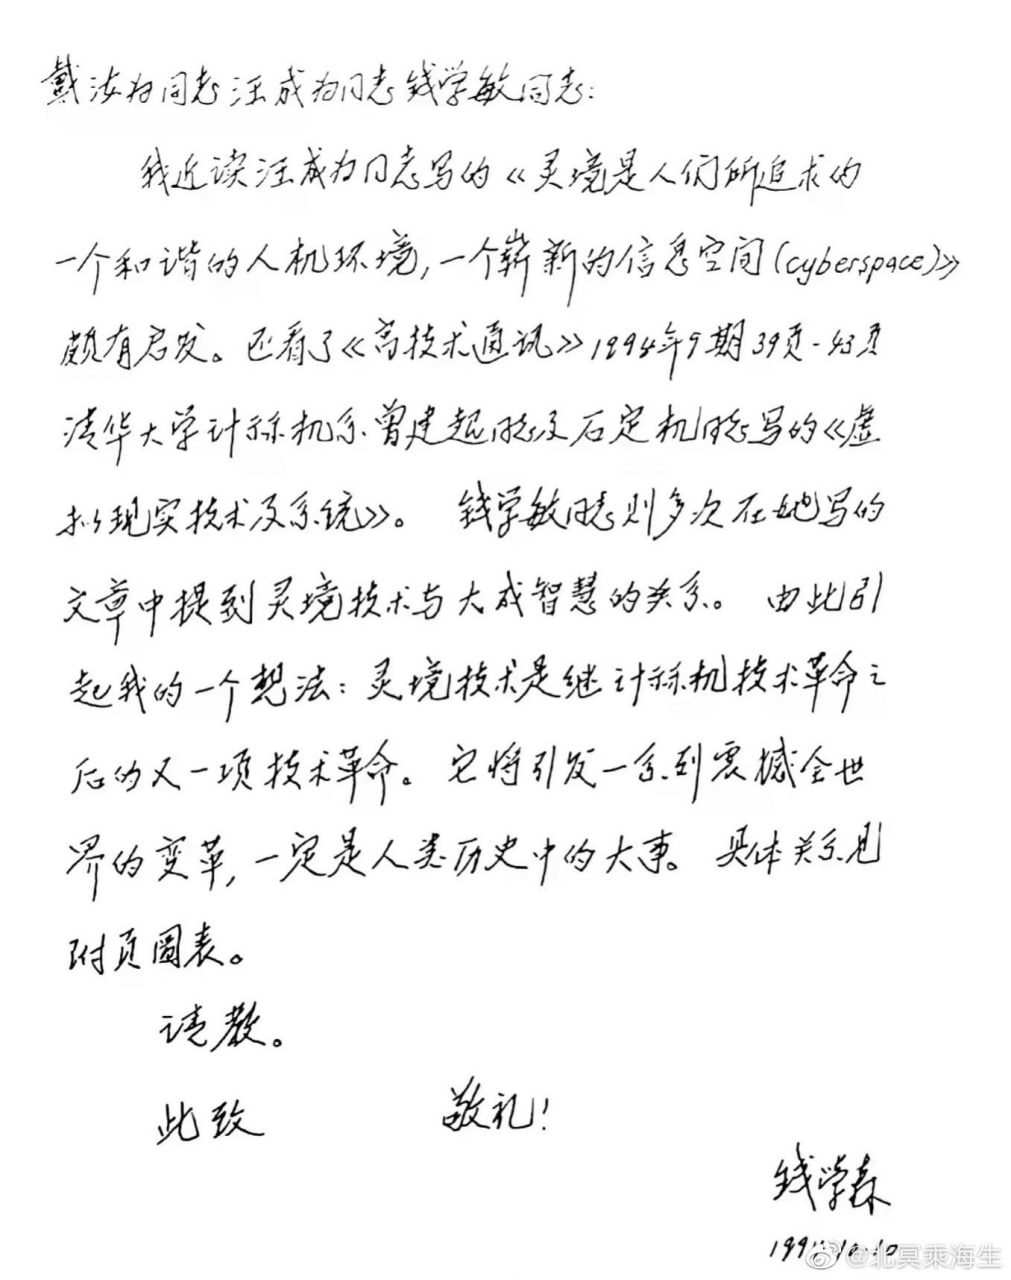 戴汝为同志汪成为同志钱学敏同志:
我近读汪成为同志写的《灵境是人们所追求的
一个和谐的人机环境,一个崭新的信息空间(cyberspace)》
颇有启发。还看了《高技术通讯》1994年9期39页-43页
清华大学计祘机系曾建超同志及石定机同志写的《虚
拟现实技术及系统》。 钱学敏同志则多次在她写的
文章中提到灵境技术与大成智慧的关系。 由此引
起我的一个想法:灵境技术是继计祘机技术革命之
后的又一项技术革命。它将引发一系列震撼全世
界的变革,一定是人类历史中的大事。具体关系见
附页圖表。
请教。
此致 敬礼!
钱学森
1994.10.10
@北冥乘海生